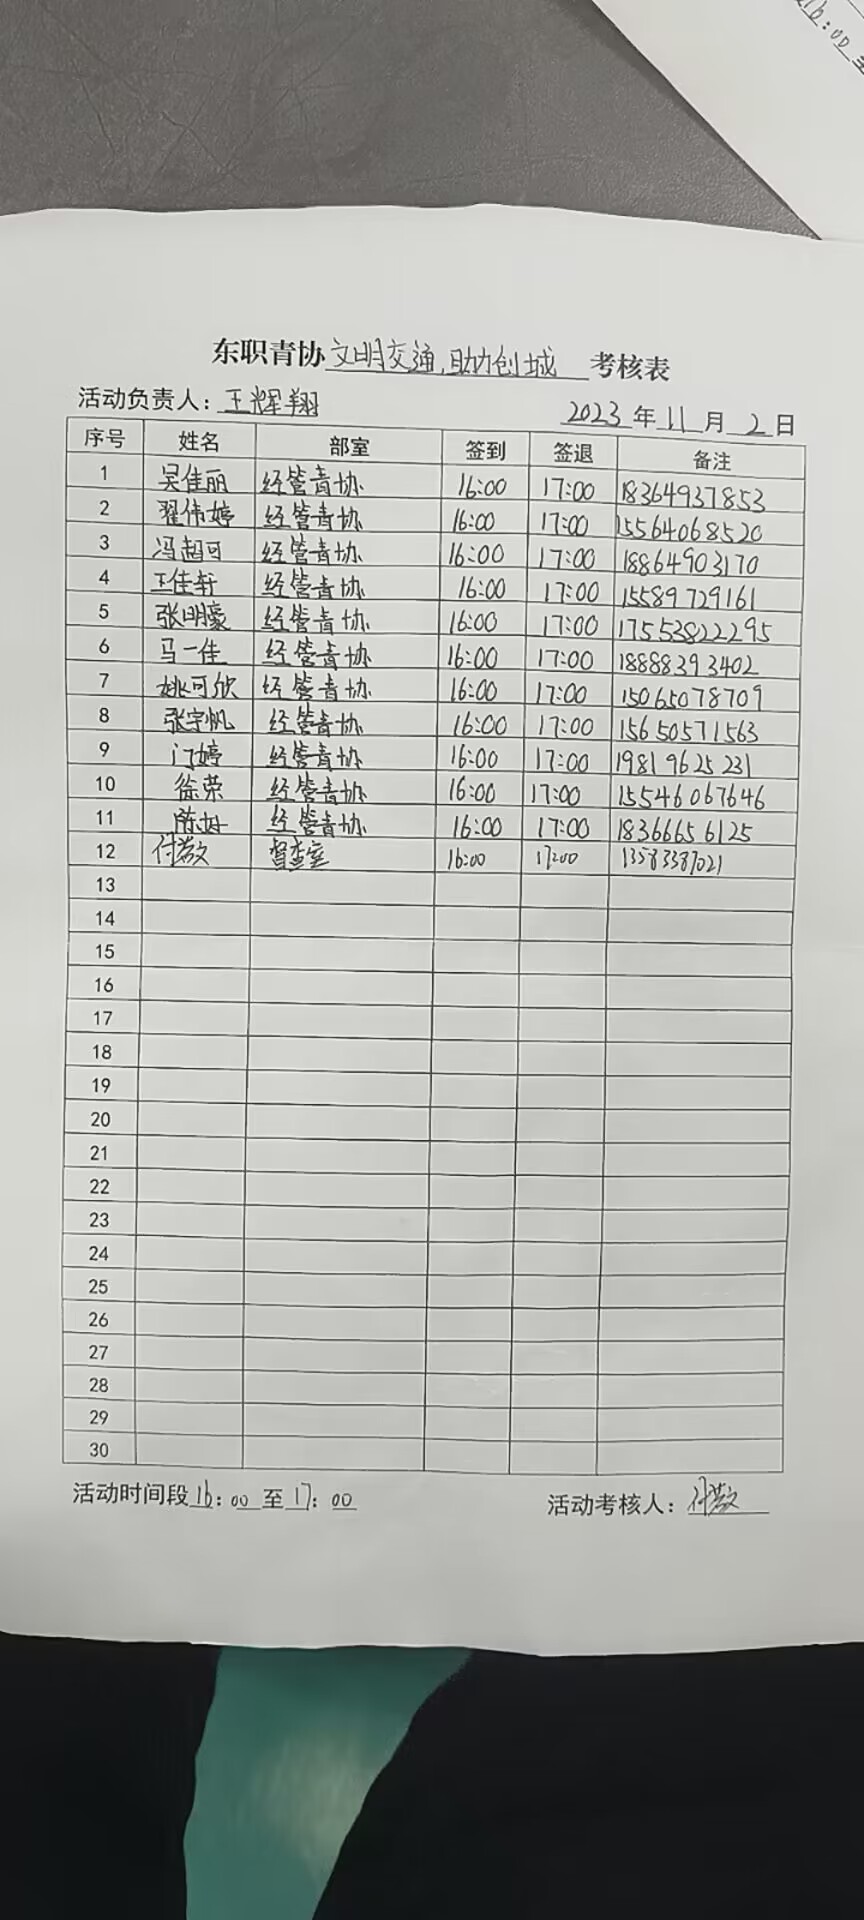 16:00至
东职青协文明交通,助力创城考核表
活动负责人:王辉翔 2023年11月2日
序号 姓名 部室 签到 签退 备注
1 吴佳丽 经管青协 16:00 17:00 18364937853
2 翟伟婷 经管青协 16:00 17:00 15564068520
3 冯超可 经管青协 16:00 17:00 18864903170
4 王佳轩 经管青协 16:00 17:00 15589729161
5 张明豪 经管青协 16:00 17:00 17553822295
6 马一佳 经管青协 16:00 17:00 18888393402
7 姚可欣 经管青协 16:00 17:00 15065078709
8 张宇帆 经管青协 16:00 17:00 15650571563
9 门婷 经管青协 16:00 17:00 19819625231
10 徐荣 经管青协 16:00 17:00 15546067646
11 陈好 经管青协 16:00 17:00 18366656125
12 督查室 16:00 17:00 13583387021
13
14
15
16
17
18
19
20
21
22
23
24
25
26
27
28
29
30
活动时间段16:00至17:00 活动考核人: